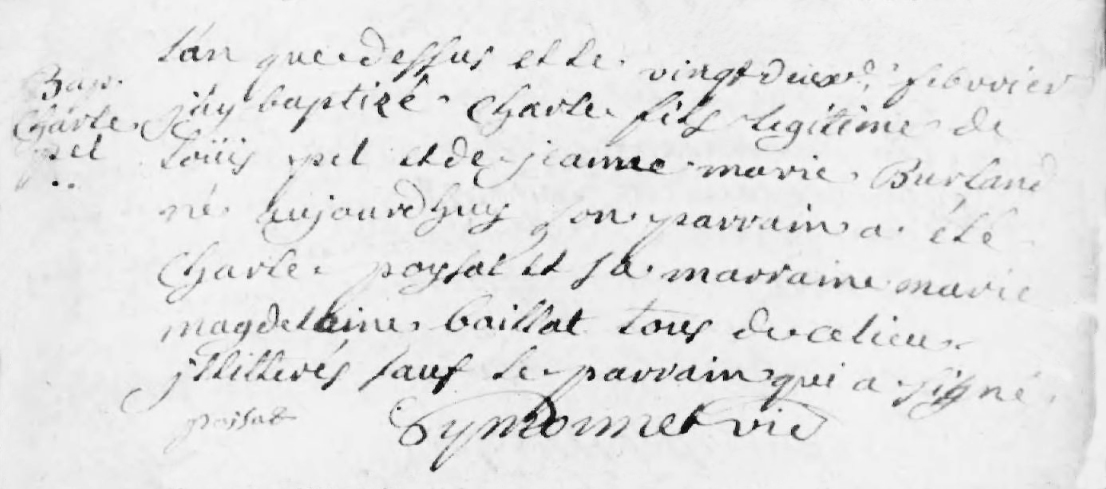 Bap.
Charle
pel
L'an que dessus et le vingt deuxe. febvrier
j'ay baptizé Charle fils legitime de
Loüis pel et de jeanne marie Burland
né aujourdhuy son parrain a été
Charle poysat et sa marraine marie
magdelaine baillat tous de ce lieu
jllitterés sauf le parrain qui a signé
poisat Symonnet vic